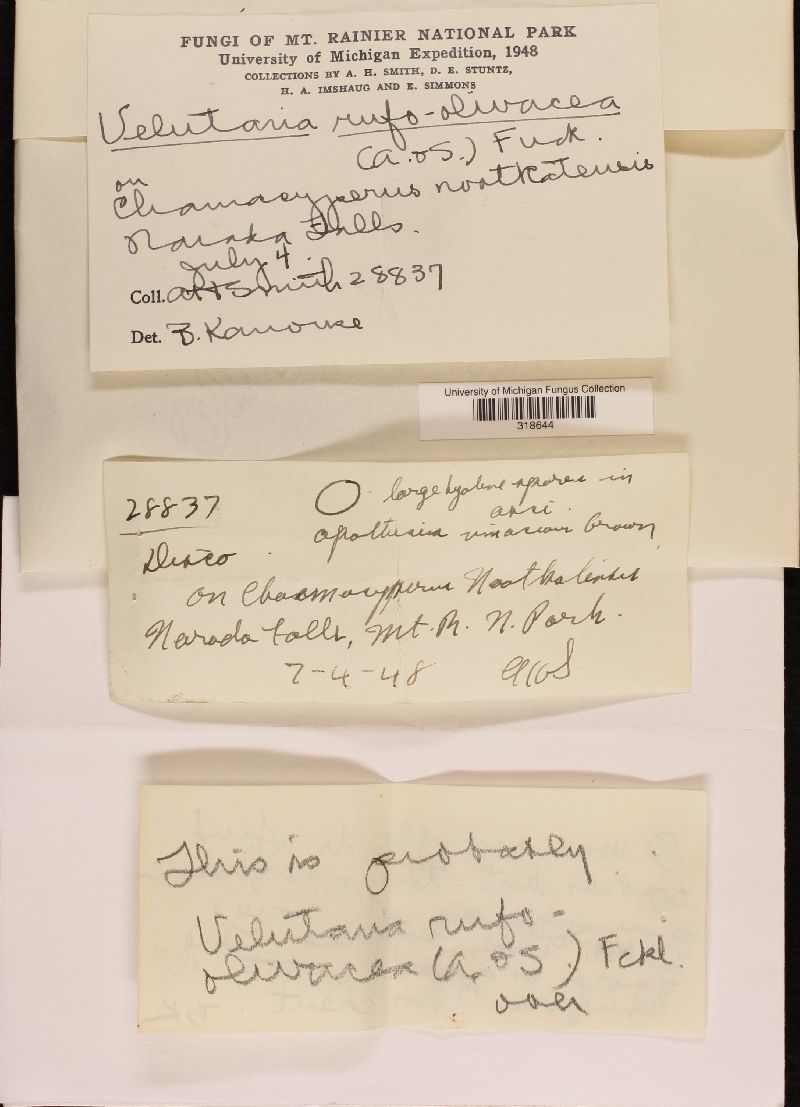 FUNGI OF MT. RAINIER NATIONAL PARK
University of Michigan Expedition, 1948
COLLECTIONS BY A. H. SMITH, D. E. STUNTZ,
H. A. IMSHAUG AND E. SIMMONS
Velutaria rufo-olivacea
(A. & S.) Fuck.
on
Chamaecyperus nootkatensis
Narada Falls.
July 4.
Coll. AH Smith 28837
Det. B. Kanouse
University of Michigan Fungus Collection
318644
28837
large hyaline spores in
asci.
apothecia vinaceous brown
Disco
on Chaemacyperus Nootkatensis
Narada Falls, Mt. R. N. Park.
7-4-48 AHS
This is probably
Velutaria rufo-
olivacea (A. & S.) Fckl.
over